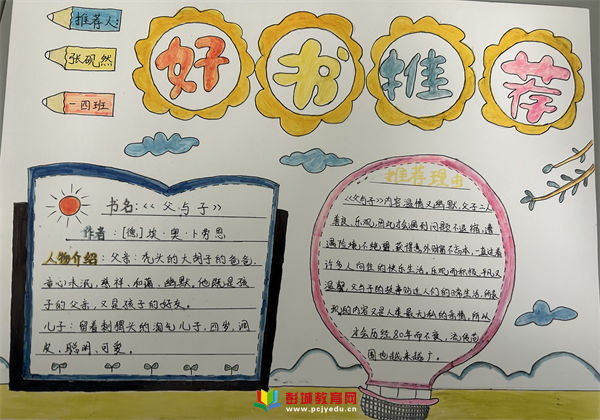 推荐人:
张砚然
一四班
好书推荐
书名:《父与子》
作者:[德]埃·奥·卜劳恩
人物介绍:父亲:秃头的大胡子的爸爸,
童心未泯,慈祥,和蔼,幽默,他既是孩
子的父亲,又是孩子的好友。
儿子:留着刺猬头的淘气儿子,四岁,调
皮、聪明、可爱。
推荐理由
《父与子》内容温情又幽默,父子二人
善良、乐观,
遭遇险境不绝望,获得意外财富不忘本,一直过着
许多人向往的快乐生活。乐观而积极,平凡又
温馨,父与子的故事贴近人们的日常生活,所表
现的内容又是人类最无私的亲情,所以
才会历经80年而不衰,流传范
围也越来越广。
彭城教育网
www.pcjyedu.cn